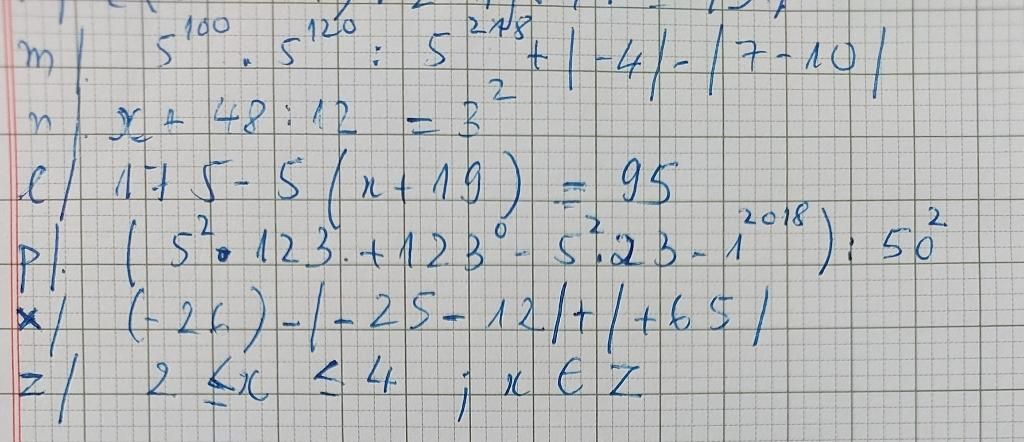 m/. 5^100 . 5^120 : 5^218 + |-4| - |7-10|
n/. x + 48 : 12 = 3^2
l/ 175 - 5 (x + 19) = 95
p/. (5^2 . 123 . + 123^0 - 5^2 . 23 - 1^2018) : 50^2
x/ (-26) - |-25 - 12| + |+65|
z/ 2 ≤ x ≤ 4 ; x ∈ Z